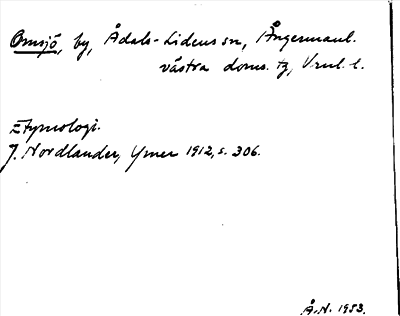 Omsjö, by, Ådals-Lidens sn, Ångermanl.
västra doms. tg, Vnl. l.
Etymologi.
J. Nordlander, Ymer 1912, s. 306.
Å.N. 1953.